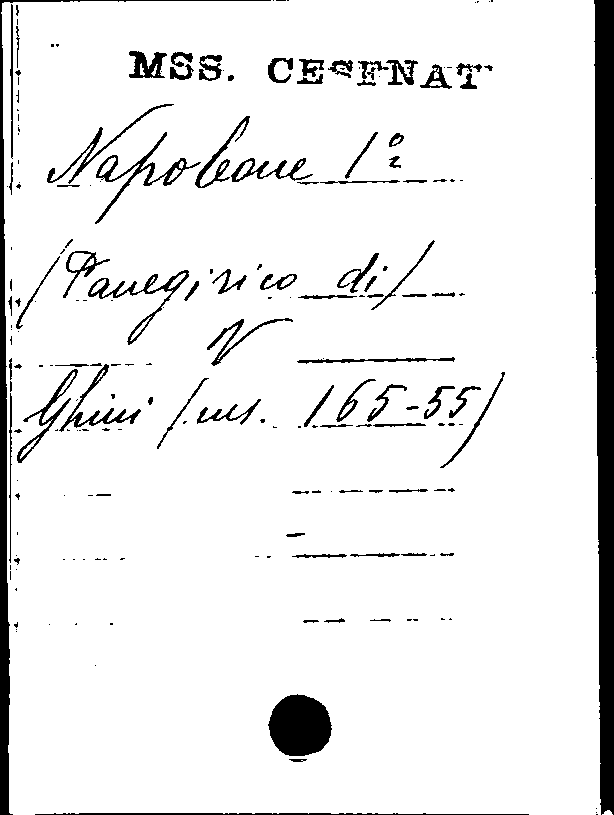 MSS. CESENAT
Napoleone 1º
(Panegirico di)
V
Ghini (ms. 165-55)